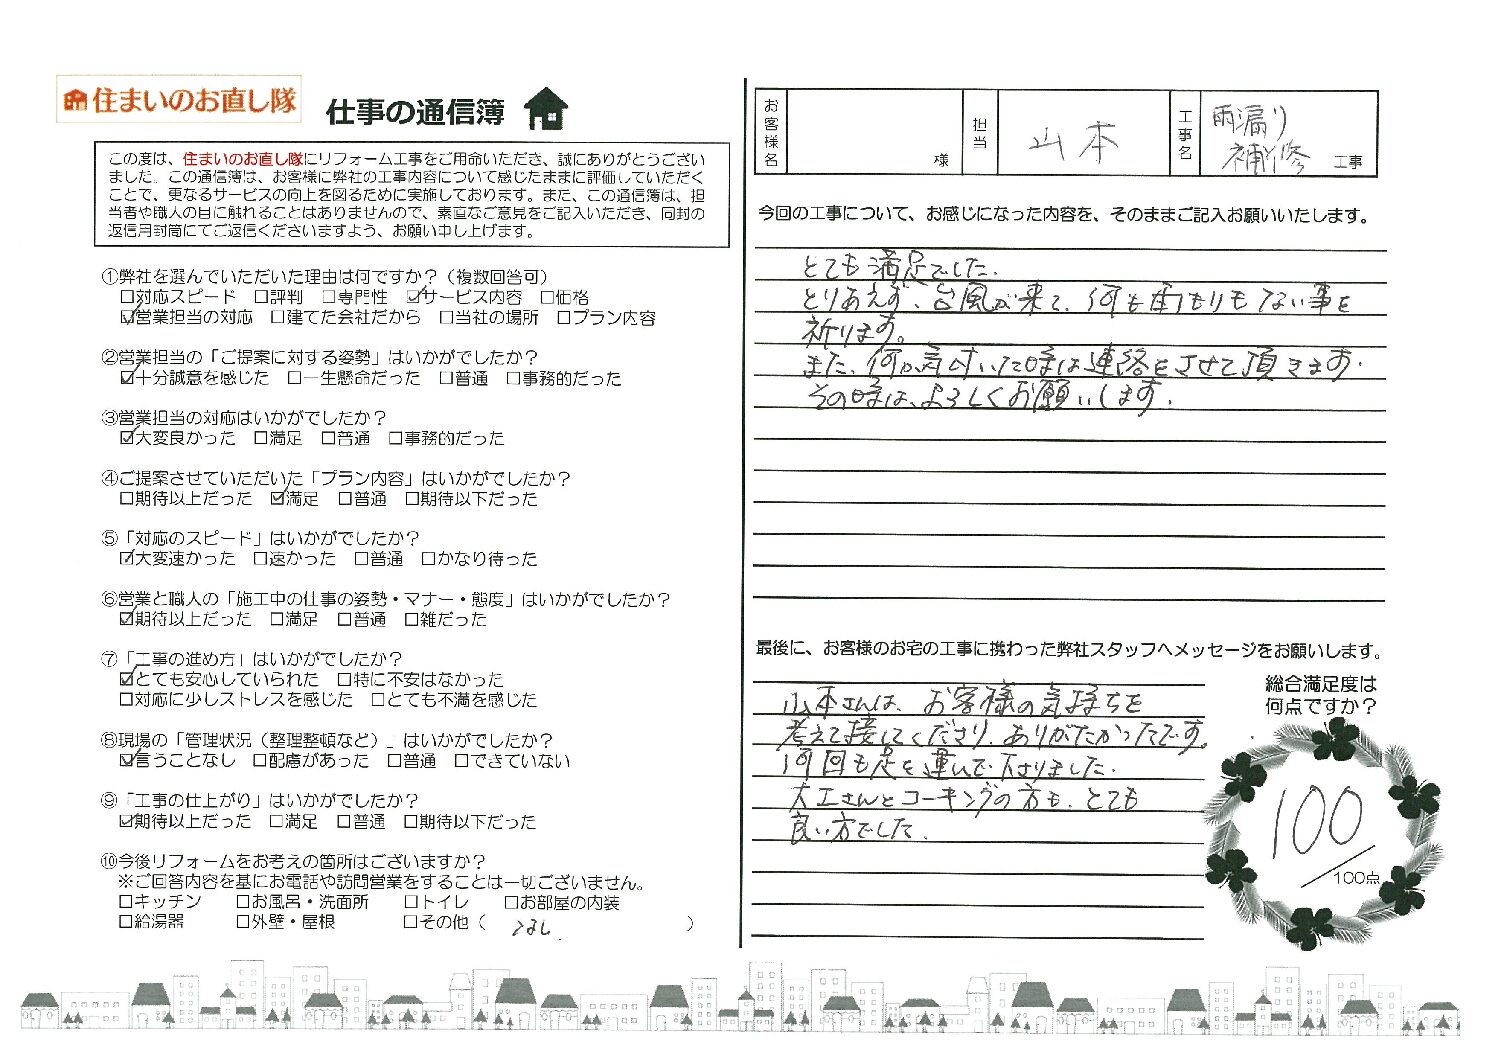 住まいのお直し隊
仕事の通信簿
この度は、住まいのお直し隊にリフォーム工事をご用命いただき、誠にありがとうござい
ました。この通信簿は、お客様に弊社の工事内容について感じたままに評価していただく
ことで、更なるサービスの向上を図るために実施しております。また、この通信簿は、担
当者や職人の目に触れることはありませんので、素直なご意見をご記入いただき、同封の
返信用封筒にてご返信くださいますよう、お願い申し上げます。
①弊社を選んでいただいた理由は何ですか？（複数回答可）
□対応スピード □評判 □専門性 ☑サービス内容 □価格
☑営業担当の対応 □建てた会社だから □当社の場所 □プラン内容
②営業担当の「ご提案に対する姿勢」はいかがでしたか？
☑十分誠意を感じた □一生懸命だった □普通 □事務的だった
③営業担当の対応はいかがでしたか？
☑大変良かった □満足 □普通 □事務的だった
④ご提案させていただいた「プラン内容」はいかがでしたか？
□期待以上だった ☑満足 □普通 □期待以下だった
⑤「対応のスピード」はいかがでしたか？
☑大変速かった □速かった □普通 □かなり待った
⑥営業と職人の「施工中の仕事の姿勢・マナー・態度」はいかがでしたか？
☑期待以上だった □満足 □普通 □雑だった
⑦「工事の進め方」はいかがでしたか？
☑とても安心していられた □特に不安はなかった
□対応に少しストレスを感じた □とても不満を感じた
⑧現場の「管理状況（整理整頓など）」はいかがでしたか？
☑言うことなし □配慮があった □普通 □できていない
⑨「工事の仕上がり」はいかがでしたか？
☑期待以上だった □満足 □普通 □期待以下だった
⑩今後リフォームをお考えの箇所はございますか？
※ご回答内容を基にお電話や訪問営業をすることは一切ございません。
□キッチン □お風呂・洗面所 □トイレ □お部屋の内装
□給湯器 □外壁・屋根 □その他（ なし ）
お客様名 様 担当 山本 工事名 雨漏り
補修 工事
今回の工事について、お感じになった内容を、そのままご記入お願いいたします。
とても満足でした.
とりあえず、台風が来て、何も雨もりもない事を
祈ります。
また、何か気付いた時は連絡をさせて頂きます.
その時は、よろしくお願いします.
最後に、お客様のお宅の工事に携わった弊社スタッフへメッセージをお願いします。
山本さんは、お客様の気持ちを
考えて接してくださり、ありがたかったです。
何回も足を運んで下さりました.
大工さんとコーキングの方も、とても
良い方でした.
総合満足度は
何点ですか？
100
／100点